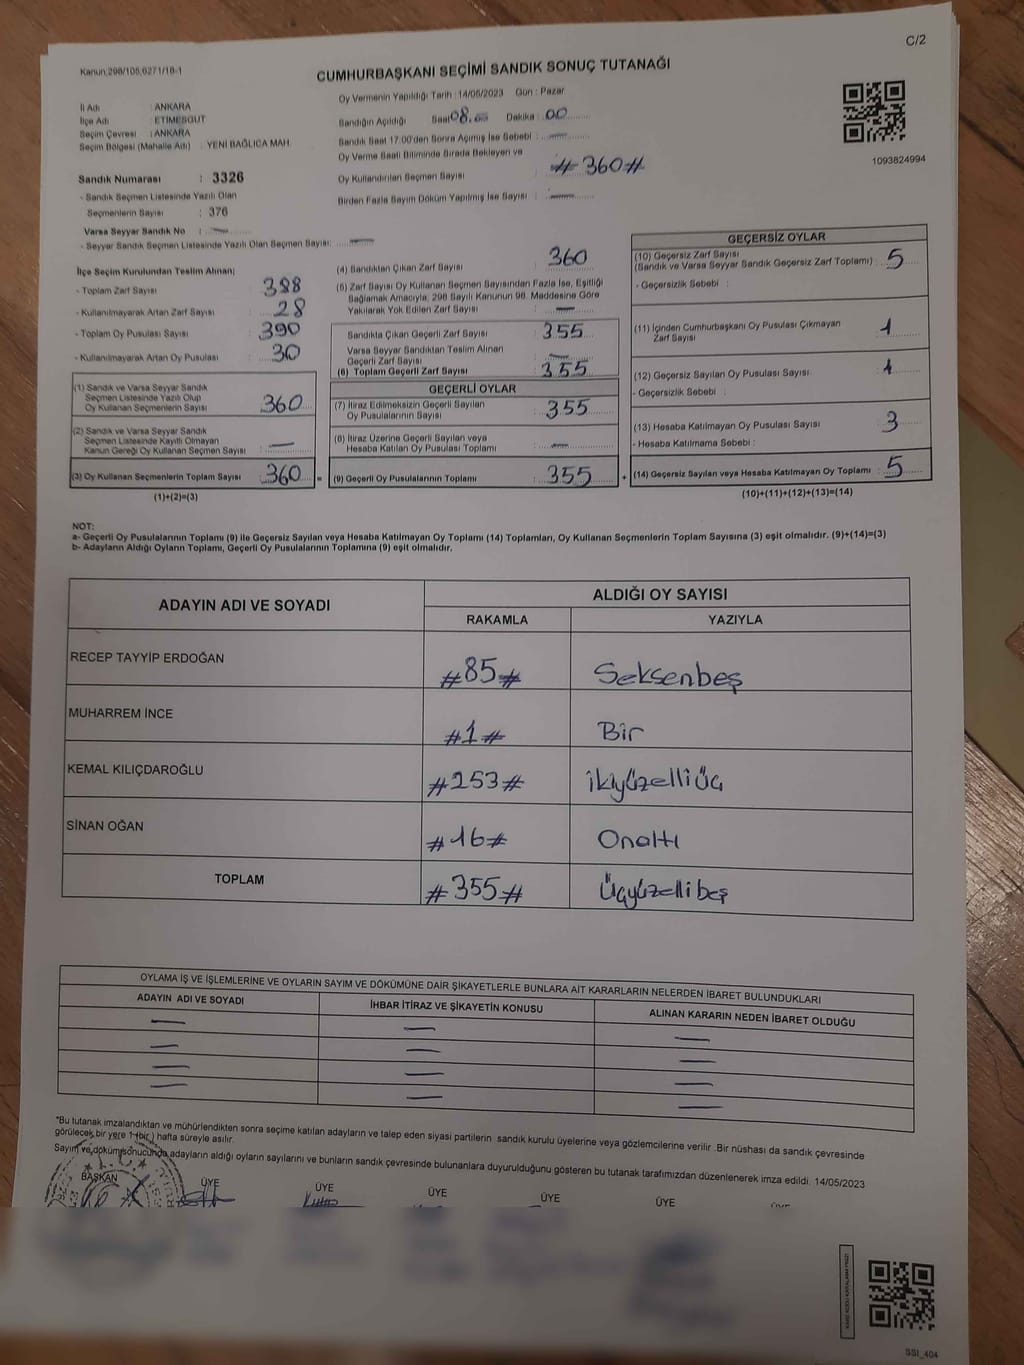 C/2
Kanun,298/105,6271/18-1
CUMHURBAŞKANI SEÇİMİ SANDIK SONUÇ TUTANAĞI
İl Adı : ANKARA
İlçe Adı : ETİMESGUT
Seçim Çevresi : ANKARA
Seçim Bölgesi (Mahalle Adı) : YENİ BAĞLICA MAH.
Sandık Numarası : 3326
- Sandık Seçmen Listesinde Yazılı Olan
Seçmenlerin Sayısı : 376
Varsa Seyyar Sandık No : —
- Seyyar Sandık Seçmen Listesinde Yazılı Olan Seçmen Sayısı: —
Oy Vermenin Yapıldığı Tarih :14/05/2023 Gün : Pazar
Sandığın Açıldığı Saat 08.00 Dakika : 00
Sandık Saat 17:00'den Sonra Açımış İse Sebebi : —
Oy Verme Saati Bitiminde Sırada Bekleyen ve
Oy Kullandırılan Seçmen Sayısı : #360#
Birden Fazla Sayım Döküm Yapılmış İse Sayısı : —
1093824994
İlçe Seçim Kurulundan Teslim Alınan;
- Toplam Zarf Sayısı : 388
- Kullanılmayarak Artan Zarf Sayısı : 28
- Toplam Oy Pusulası Sayısı : 390
- Kullanılmayarak Artan Oy Pusulası : 30
(1) Sandık ve Varsa Seyyar Sandık
Seçmen Listesinde Yazılı Olup
Oy Kullanan Seçmenlerin Sayısı : 360
(2) Sandık ve Varsa Seyyar Sandık
Seçmen Listesinde Kayıtlı Olmayan
Kanun Gereği Oy Kullanan Seçmen Sayısı : —
(3) Oy Kullanan Seçmenlerin Toplam Sayısı : 360 =
(1)+(2)=(3)
(4) Sandıktan Çıkan Zarf Sayısı : 360
(5) Zarf Sayısı Oy Kullanan Seçmen Sayısından Fazla İse, Eşitliği
Sağlamak Amacıyla, 298 Sayılı Kanunun 98. Maddesine Göre
Yakılarak Yok Edilen Zarf Sayısı : —
Sandıkta Çıkan Geçerli Zarf Sayısı : 355
Varsa Seyyar Sandıktan Teslim Alınan
Geçerli Zarf Sayısı : —
(6) Toplam Geçerli Zarf Sayısı : 355
GEÇERLİ OYLAR
(7) İtiraz Edilmeksizin Geçerli Sayılan
Oy Pusulalarının Sayısı : 355
(8) İtiraz Üzerine Geçerli Sayılan veya
Hesaba Katılan Oy Pusulası Toplamı : —
(9) Geçerli Oy Pusulalarının Toplamı : 355 +
GEÇERSİZ OYLAR
(10) Geçersiz Zarf Sayısı
(Sandık ve Varsa Seyyar Sandık Geçersiz Zarf Toplamı) : 5
- Geçersizlik Sebebi :
(11) İçinden Cumhurbaşkanı Oy Pusulası Çıkmayan
Zarf Sayısı : 1
(12) Geçersiz Sayılan Oy Pusulası Sayısı : 1
- Geçersizlik Sebebi :
(13) Hesaba Katılmayan Oy Pusulası Sayısı : 3
- Hesaba Katılmama Sebebi :
(14) Geçersiz Sayılan veya Hesaba Katılmayan Oy Toplamı : 5
(10)+(11)+(12)+(13)=(14)
NOT:
a- Geçerli Oy Pusulalarının Toplamı (9) ile Geçersiz Sayılan veya Hesaba Katılmayan Oy Toplamı (14) Toplamları, Oy Kullanan Seçmenlerin Toplam Sayısına (3) eşit olmalıdır. (9)+(14)=(3)
b- Adayların Aldığı Oyların Toplamı, Geçerli Oy Pusulalarının Toplamına (9) eşit olmalıdır.
ADAYIN ADI VE SOYADI ALDIĞI OY SAYISI
RAKAMLA YAZIYLA
RECEP TAYYİP ERDOĞAN #85# Seksenbeş
MUHARREM İNCE #1# Bir
KEMAL KILIÇDAROĞLU #253# ikiyüzelliüç
SİNAN OĞAN #16# Onaltı
TOPLAM #355# Üçyüzellibeş
OYLAMA İŞ VE İŞLEMLERİNE VE OYLARIN SAYIM VE DÖKÜMÜNE DAİR ŞİKAYETLERLE BUNLARA AİT KARARLARIN NELERDEN İBARET BULUNDUKLARI
ADAYIN ADI VE SOYADI İHBAR İTİRAZ VE ŞİKAYETİN KONUSU ALINAN KARARIN NEDEN İBARET OLDUĞU
— — —
— — —
— — —
— — —
*Bu tutanak imzalandıktan ve mühürlendikten sonra seçime katılan adayların ve talep eden siyasi partilerin sandık kurulu üyelerine veya gözlemcilerine verilir. Bir nüshası da sandık çevresinde
görülecek bir yere 1 (bir) hafta süreyle asılır.
Sayım ve döküm sonucunda adayların aldığı oyların sayılarını ve bunların sandık çevresinde bulunanlara duyurulduğunu gösteren bu tutanak tarafımızdan düzenlenerek imza edildi. 14/05/2023
BAŞKAN ÜYE ÜYE ÜYE ÜYE ÜYE ÜYE
SSI_404